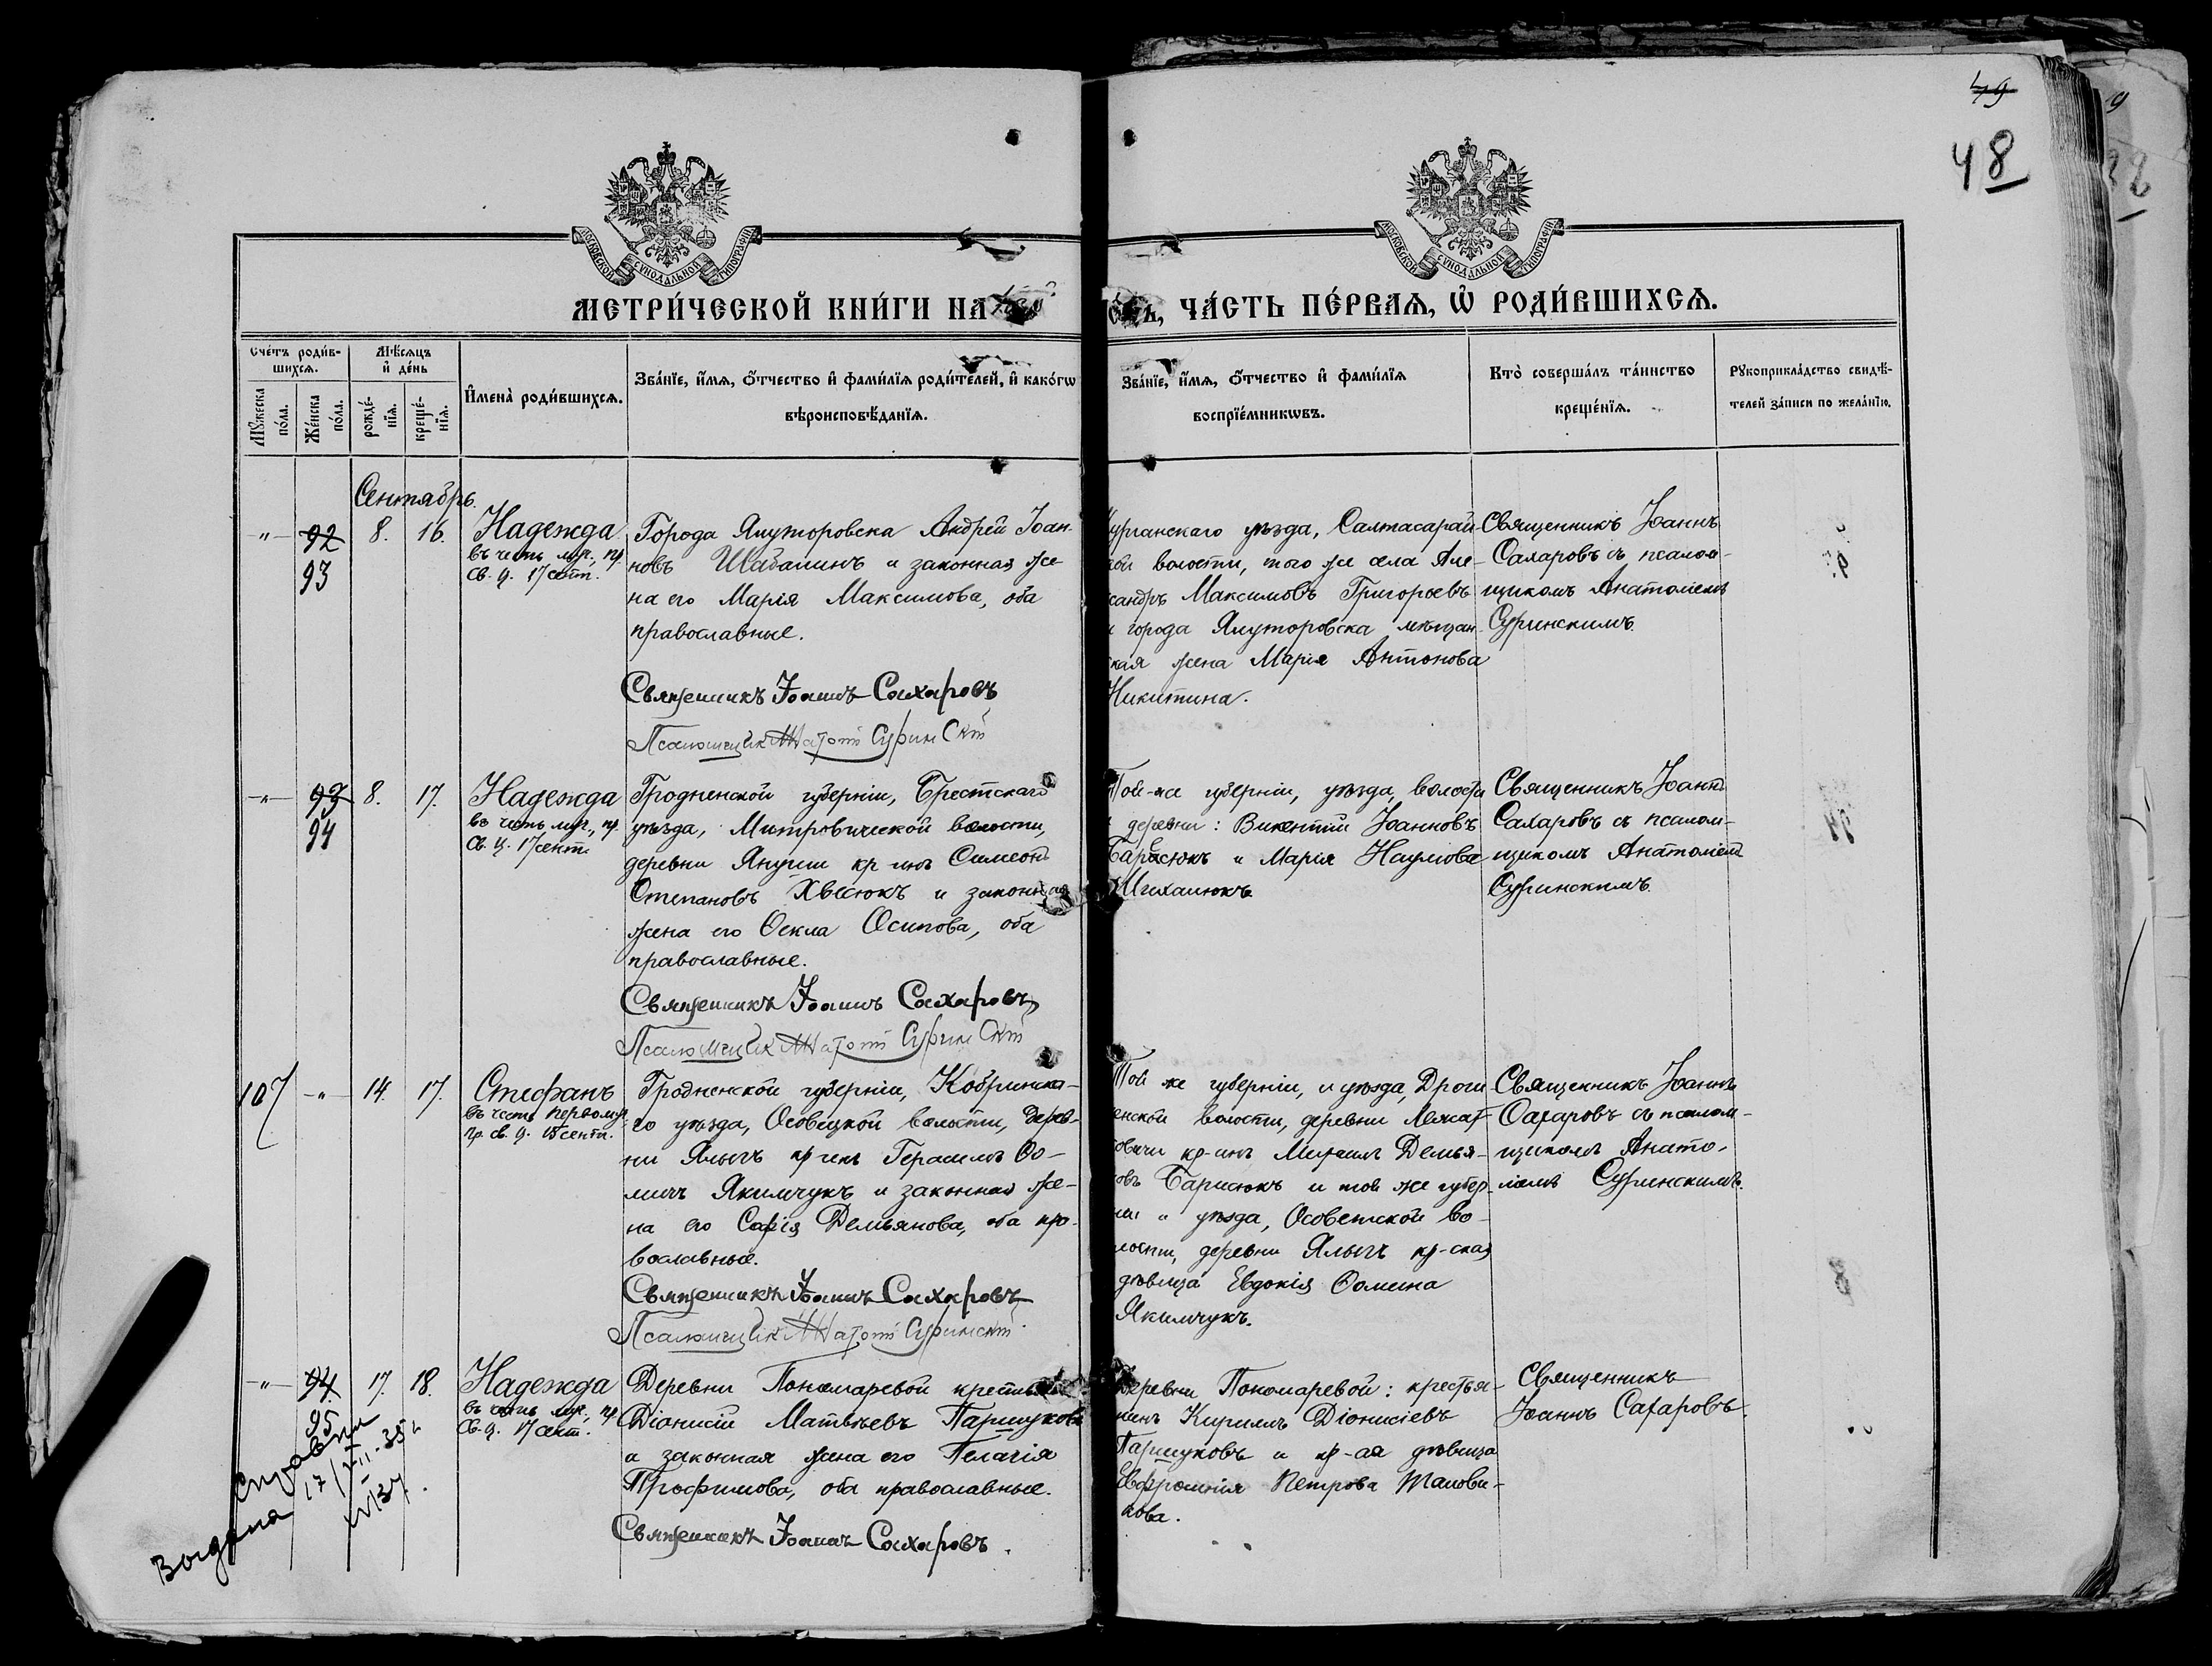 49
48
МОСКОВСКОЙ СУНОДАЛЬНОЙ ТИПОГРАФІИ
МОСКОВСКОЙ СУНОДАЛЬНОЙ ТИПОГРАФІИ
МЕТРИ́ЧЕСКОЙ КНИ́ГИ НА
ЧА́СТЬ ПЕ́РВАѦ, Ѿ РОДИ́ВШИХСѦ.
Сче́тъ роди́в-
шихсѧ.
Мꙋ́жеска по́ла.
Же́нска по́ла.
Мѣ́сѧцъ и҆ де́нь
рожде́-
нїѧ.
креще́-
нїѧ.
И҆мена̀ роди́вшихсѧ.
Зва́нїе, и҆́мѧ, ѻ҆́тчество и҆ фами́лїѧ роди́телей, и҆ како́гѡ
вѣроисповѣ́данїѧ.
Зва́нїе, и҆́мѧ, ѻ҆́тчество и҆ фами́лїѧ
воспрїе́мникѡвъ.
Кто̀ соверша́лъ та́инство
креще́нїѧ.
Рꙋкоприкла́дство свидѣ́-
телей за́писи по жела́нїю.
Сентябрь.
-"- 92 8. 16. Надежда
93
въ честь муч., пр.
св. ц. 17 сент.
Города Ялуторовска Андрей Іоан-
новъ Шабалинъ и законная же-
на его Марія Максимова, оба
православные.
Священникъ Іоаннъ Сахаровъ
Псаломщик Анатолій Суринскій
Курганскаго уѣзда, Салтасарай
кой волости, того же села Але-
ксандръ Максимовъ Григорьевъ
и города Ялуторовска мѣщан-
ская жена Марія Антонова
Никитина.
Священникъ Іоаннъ
Сахаровъ съ псалом-
щикомъ Анатоліемъ
Суринскимъ.
-"- 93 8. 17. Надежда
94
въ честь муч., пр.
св. ц. 17 сент.
Гродненской губерніи, Брестскаго
уѣзда, волости,
деревни кр-инъ Симеонъ
Степановъ Хвесюкъ и законная
жена его Ѳекла Осипова, оба
православные.
Священникъ Іоаннъ Сахаровъ
Псаломщик Анатолій Суринскій
Той-же губерніи, уѣзда, волости
и деревни: Викентій Іоанновъ
Барасюкъ и Марія Наумова
Михалюкъ
Священникъ Іоаннъ
Сахаровъ съ псалом-
щикомъ Анатоліемъ
Суринскимъ.
107 -"- 14. 17. Стефанъ
въ честь первомуч.
пр. св. ц. 15 сент.
Гродненской губерніи, Кобринска-
го уѣзда, Осовецкой волости, дерев-
ни Ялычъ кр-инъ Герасимъ Ѳо-
минъ Якимчукъ и законная же-
на его Софія Демьянова, оба пра-
вославные.
Священникъ Іоаннъ Сахаровъ
Псаломщик Анатолій Суринскій
Той же губерніи, и уѣзда, Дроги
ченской волости, деревни
кр-инъ Михаилъ Демья-
новъ Барисюкъ и той же губер-
ніи и уѣзда, Осовецкой во-
лости, деревни Ялычъ кр-ская
дѣвица Евдокія Ѳомина
Якимчукъ.
Священникъ Іоаннъ
Сахаровъ съ псалом-
щикомъ Анато-
ліемъ Суринскимъ.
-"- 94. 17. 18. Надежда
95
въ честь муч., пр.
св. ц. 17 сент.
Деревни Пономаревой крестьянинъ
Діонисій Матвѣевъ Паршуковъ
и законная жена его Пелагія
Трофимова, оба православные.
Священникъ Іоаннъ Сахаровъ.
Деревни Пономаревой: крестья-
нинъ Кириллъ Діонисіевъ
Паршуковъ и кр-ая дѣвица
Евфросинія Петрова
Священникъ
Іоаннъ Сахаровъ.
Выдана
17/VII-35 г